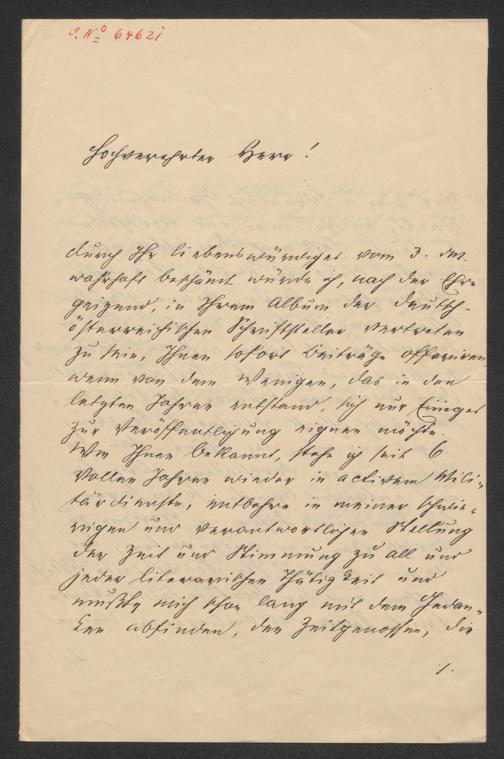 J. No 64621
Hochverehrter Herr!
durch Ihr liebenswürdiges vom 3. des.
wahrhaft beschämt würde ich, nach der Ehre
geizend, in Ihrem Album der deutsch-
österreichischen Schriftsteller vertreten
zu sein, Ihnen sofort Beiträge offeriren,
wenn von dem Wenigen, das in den
letzten Jahren entstand, sich nur Einiges
zur Veröffentlichung eignen möchte.
Wie Ihnen bekannt, stehe ich seit 6
vollen Jahren wieder in activem Mili-
tärdienste, entbehre in meiner schwie-
rigen und verantwortlichen Stellung
der Zeit und Stimmung zu all und
jeder literarischen Thätigkeit und
mußte mich schon lang mit dem Gedan-
ken abfinden, den Zeitgenossen, die
1.